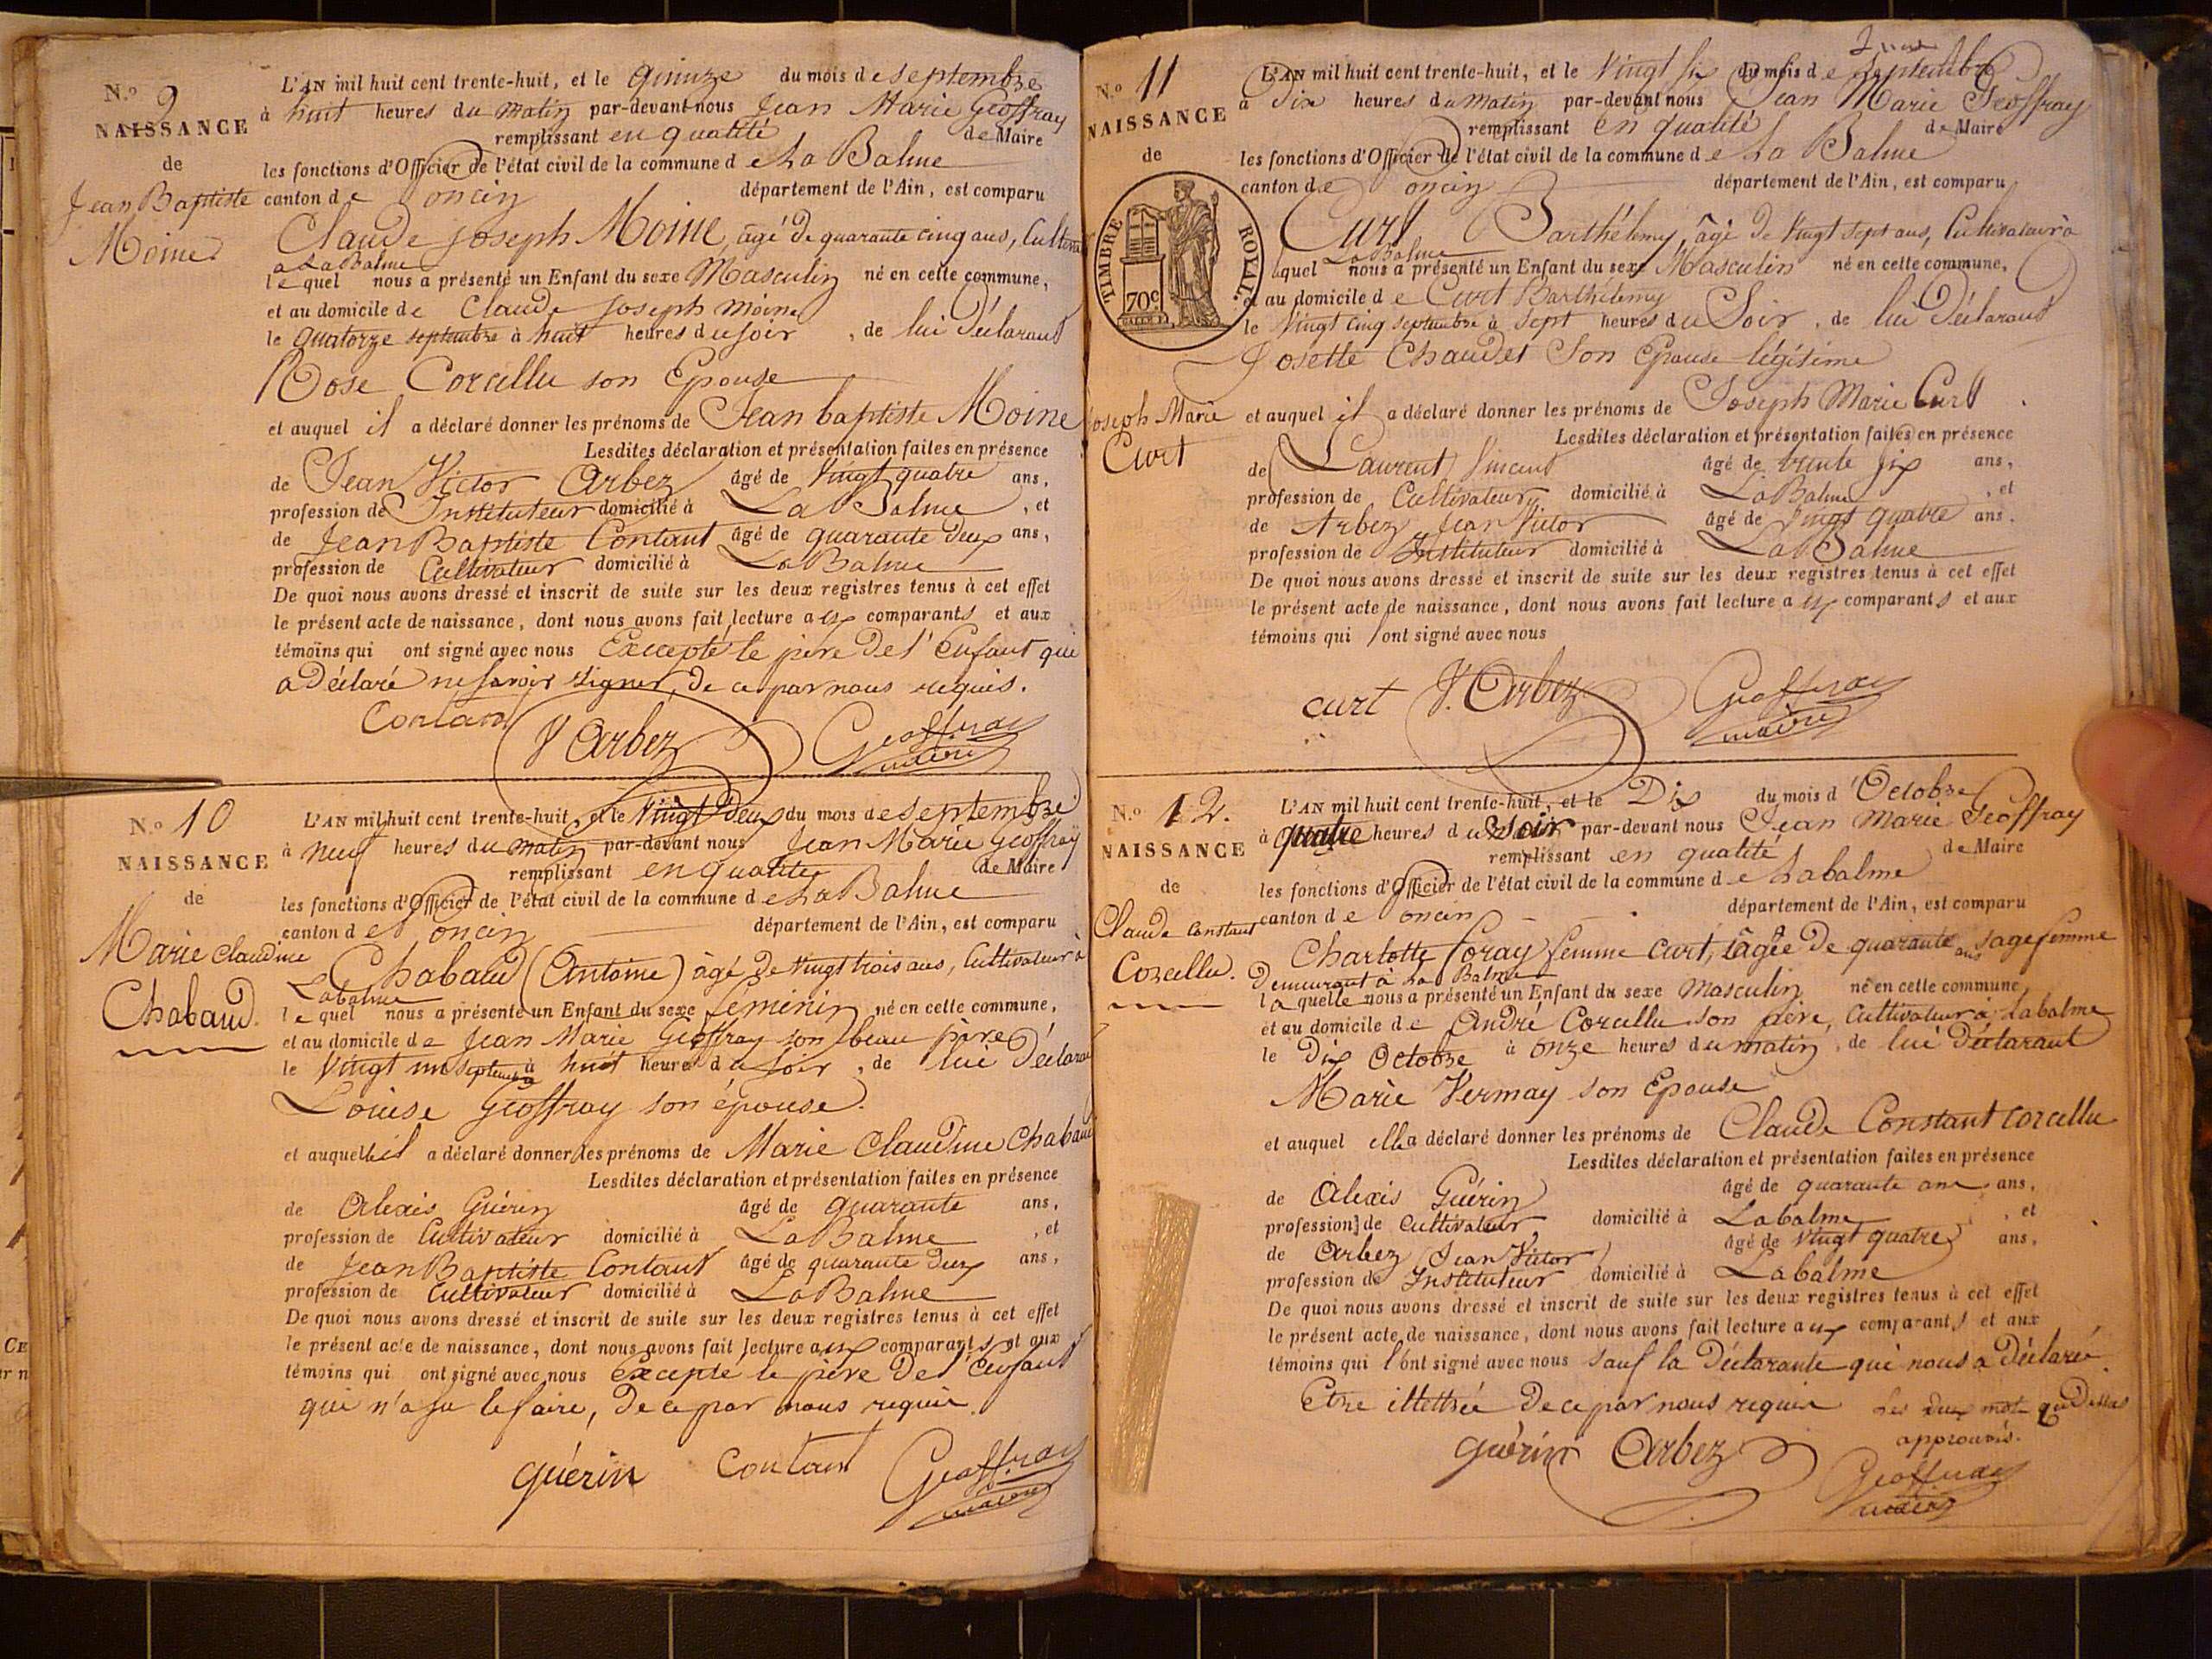 N.º 9
NAISSANCE
de
Jean Baptiste
Moine
L'AN mil huit cent trente-huit, et le quinze du mois de septembre
à huit heures du matin par-devant nous Jean Marie Geoffray
remplissant en qualité de Maire
les fonctions d'Officier de l'état civil de la commune de La Balme
canton de Poncin département de l'Ain, est comparu
Claude Joseph Moine, âgé de quarante cinq ans, Cultiva
a La Balme
lequel nous a présenté un Enfant du sexe Masculin né en cette commune,
et au domicile de Claude Joseph moine
le quatorze septembre à huit heures du soir, de lui Déclarant
Rose Corcellu son Epouse
et auquel il a déclaré donner les prénoms de Jean baptiste Moine
Lesdites déclaration et présentation faites en présence
de Jean Victor Arbez âgé de Vingt quatre ans,
profession de Instituteur domicilié à La Balme, et
de Jean Baptiste Contant âgé de quarante deux ans,
profession de Cultivateur domicilié à La Balme
De quoi nous avons dressé et inscrit de suite sur les deux registres tenus à cet effet
le présent acte de naissance, dont nous avons fait lecture aux comparants et aux
témoins qui ont signé avec nous Excepté le père de l'Enfant qui
a Déclaré ne savoir signer, de ce par nous requis.
Contant V Arbez Geoffray
maire
N.º 10
NAISSANCE
de
Marie claudine
Chabaud.
L'AN mil huit cent trente-huit, et le Vingt Deux du mois de septembre
à neuf heures du matin par-devant nous Jean Marie Geoffray
remplissant en qualité de Maire
les fonctions d'Officier de l'état civil de la commune de La Balme
canton de Poncin département de l'Ain, est comparu
Chabaud (Antoine) âgé de Vingt trois ans, Cultivateur à
Labalme
lequel nous a présenté un Enfant du sexe féminin né en cette commune,
et au domicile de Jean Marie Geoffray son beau père
le Vingt un septembre à huit heures du soir, de lui Déclara
Louise Geoffray son épouse.
et auquelle il a déclaré donner les prénoms de Marie Claudine Chabaud
Lesdites déclaration et présentation faites en présence
de Alexis Guérin âgé de quarante ans,
profession de Cultivateur domicilié à La Balme, et
de Jean Baptiste Contant âgé de quarante deux ans,
profession de Cultivateur domicilié à La Balme
De quoi nous avons dressé et inscrit de suite sur les deux registres tenus à cet effet
le présent acte de naissance, dont nous avons fait lecture aux comparants et aux
témoins qui ont signé avec nous Excepté le père de l'Enfant
qui n'a su le faire, de ce par nous requis.
guérin Contant Geoffray
maire
N.º 11
NAISSANCE
de
TIMBRE ROYAL.
70c
Joseph Marie
Curt
L'AN mil huit cent trente-huit, et le Vingt six du mois de Septembre
à Dix heures du matin par-devant nous Jean Marie Geoffray
remplissant en qualité de Maire
les fonctions d'Officier de l'état civil de la commune de La Balme
canton de Poncin département de l'Ain, est comparu
Curt Barthélemy, âgé de Vingt sept ans, Cultivateur à
La Balme
lequel nous a présenté un Enfant du sexe Masculin né en cette commune,
et au domicile de Curt Barthélemy
le Vingt cinq septembre à sept heures du Soir, de lui Déclarant
Josette Chaudet Son Epouse légitime
et auquel il a déclaré donner les prénoms de Joseph Marie Curt.
Lesdites déclaration et présentation faites en présence
de Laurent Vincent âgé de trente six ans,
profession de Cultivateur domicilié à La Balme, et
de Arbez Jean Victor âgé de Vingt quatre ans.
profession de Instituteur domicilié à La Balme
De quoi nous avons dressé et inscrit de suite sur les deux registres tenus à cet effet
le présent acte de naissance, dont nous avons fait lecture aux comparants et aux
témoins qui l'ont signé avec nous
curt V. Arbez Geoffray
maire
N.º 12.
NAISSANCE
de
Claude Constant
Corcellu.
L'AN mil huit cent trente-huit, et le Dix du mois d'Octobre
à quatre heures du soir par-devant nous Jean Marie Geoffray
remplissant en qualité de Maire
les fonctions d'Officier de l'état civil de la commune de Labalme
canton de Poncin département de l'Ain, est comparu
Charlotte Foray femme Curt, âgée de quarante ans sage femme
Demeurant à La Balme
laquelle nous a présenté un Enfant du sexe masculin né en cette commune,
et au domicile de André Corcellu son père, Cultivateur à Labalme
le Dix Octobre à onze heures du matin, de lui Déclarant
Marie Vermay son Epouse
et auquel elle a déclaré donner les prénoms de Claude Constant Corcellu
Lesdites déclaration et présentation faites en présence
de Alexis Guérin âgé de quarante ans ans,
profession de Cultivateur domicilié à Labalme, et
de Arbez Jean Victor âgé de Vingt quatre ans,
profession de Instituteur domicilié à Labalme
De quoi nous avons dressé et inscrit de suite sur les deux registres tenus à cet effet
le présent acte de naissance, dont nous avons fait lecture aux comparants et aux
témoins qui l'ont signé avec nous sauf la Déclarante qui nous a Déclaré
Etre illettrée de ce par nous requise Les deux mots que Dessus
approuvés.
guérin Arbez Geoffray
maire